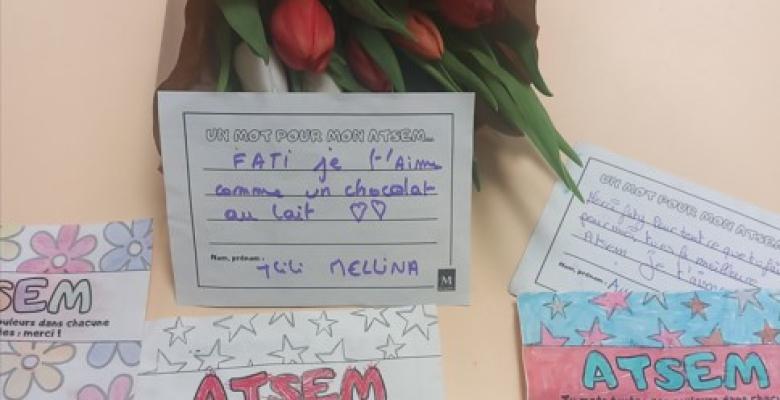 UN MOT POUR MON ATSEM...
FATI je t'aime
comme un chocolat
au lait ♡♡
Nom, prénom :
MELLINA
M
UN MOT POUR MON ATSEM
Merci Faty pour tout ce que tu fais
pour moi, tu es la meilleure
Atsem je t'aime
Nom, prénom :
SEM
ouleurs dans chacune
ées : merci !
ATSEM
ATSEM
Tu mets toutes ces couleurs dans chac